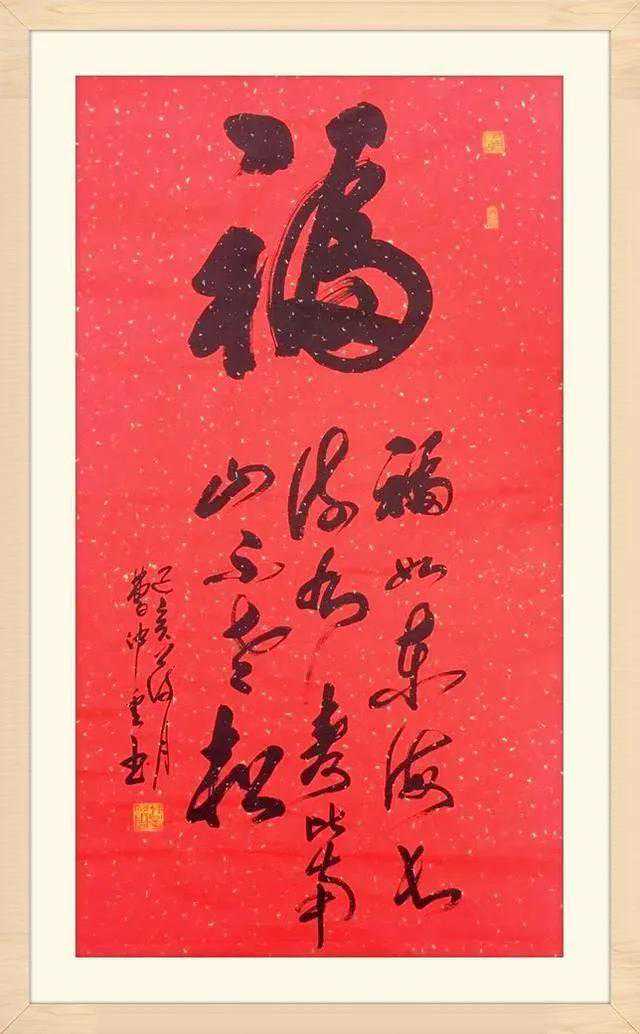 福
福如东海长
流水寿比南
山不老松
己亥月
曹冲雲